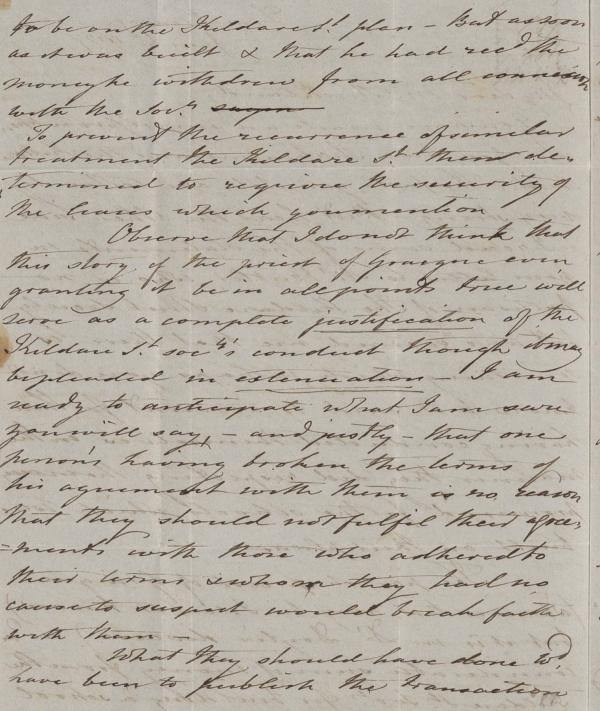 to be on the Kildare St. plan – But as soon
as it was built & that he had recd the
money he withdrew from all connexion
with the Socy.
To prevent the recurrence of similar
treatment the Kildare St. then de-
termined to require the security of
the leases which you mention
Observe that I do not think that
this story of the priest of Graigue even
granting it be in all points true will
serve as a complete justification of the
Kildare St. Socy's conduct though it may
be pleaded in extenuation – I am
ready to anticipate what I am sure
you will say – and justly – that one
person's having broken the terms of
his agreement with them is no reason
that they should not fulfil their agree-
=ments with those who adhered to
their terms & whom they had no
cause to suspect would break faith
with them –
What they should have done wd
have been to publish the transaction